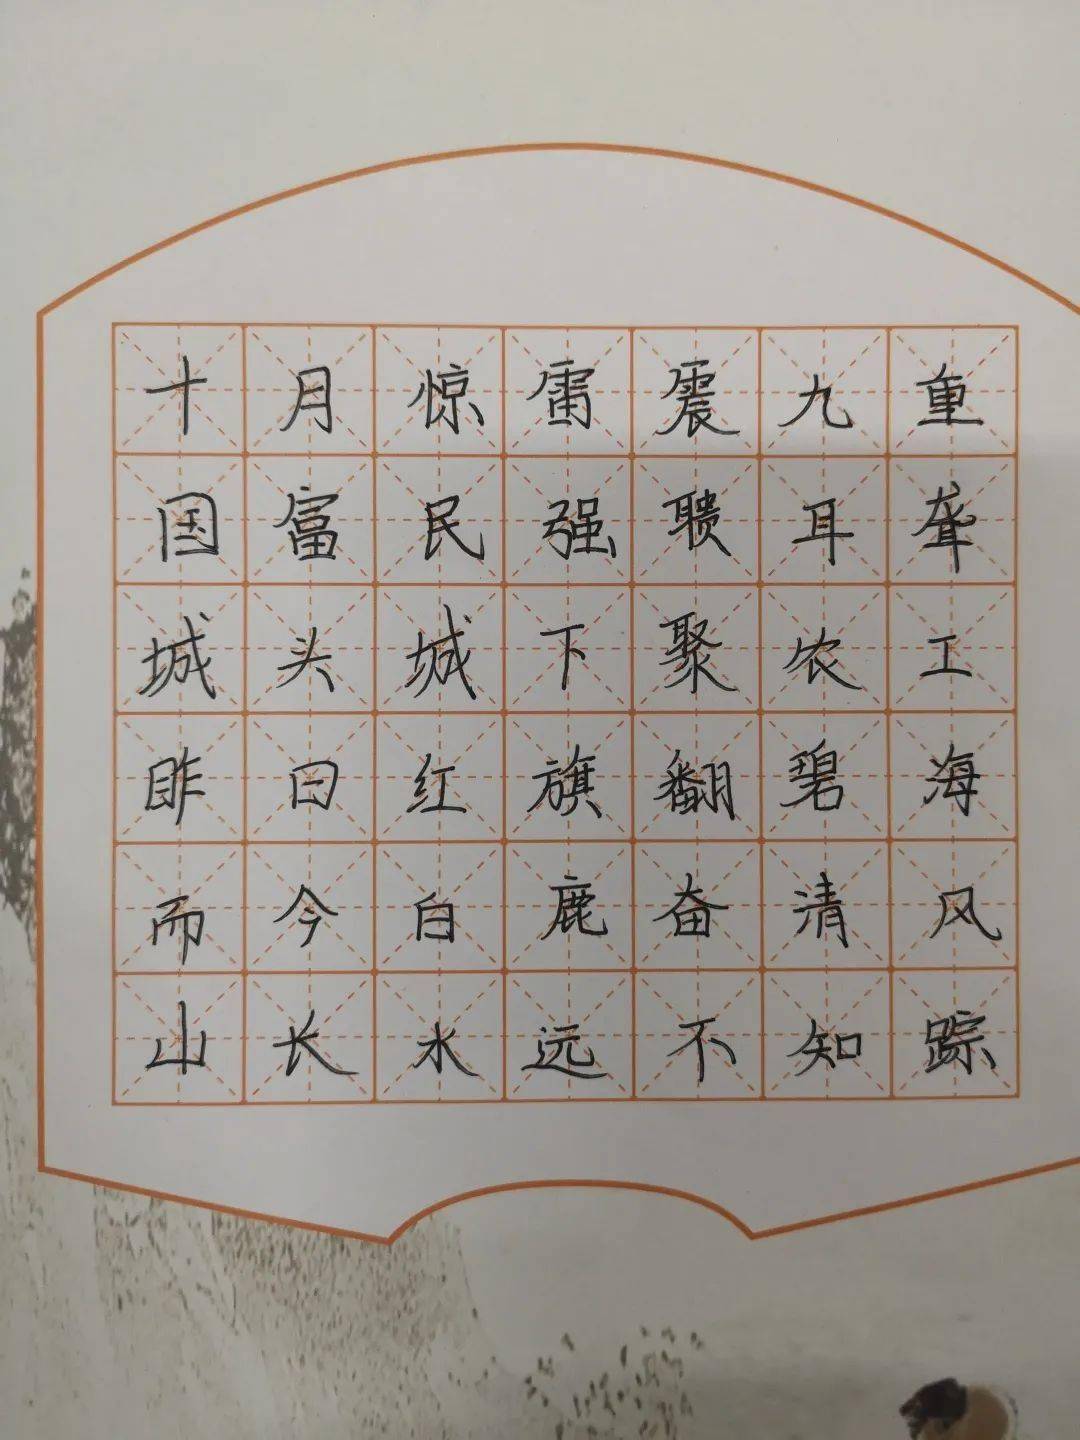 十月惊雷震九重
国富民强聩耳聋
城头城下聚农工
昨日红旗翻碧海
而今白鹿奋清风
山长水远不知踪